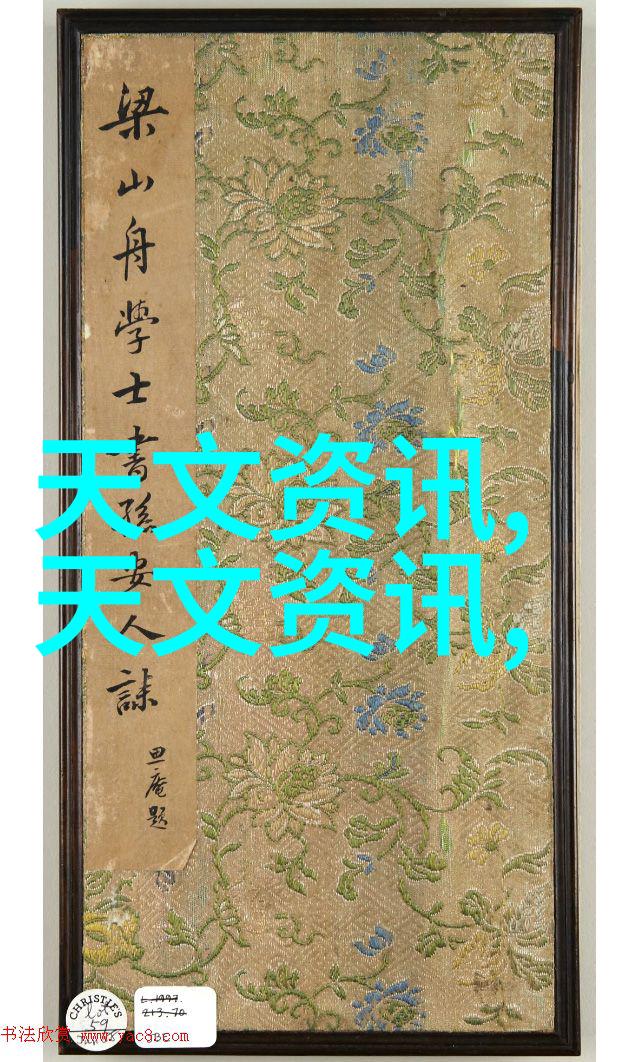 梁山舟學士書孫安人誄
思庵題
天文资讯,
天文资讯,
CHRISTIE'S
lot
59
L.1997.
213.70
书法欣赏 www.yac8.com